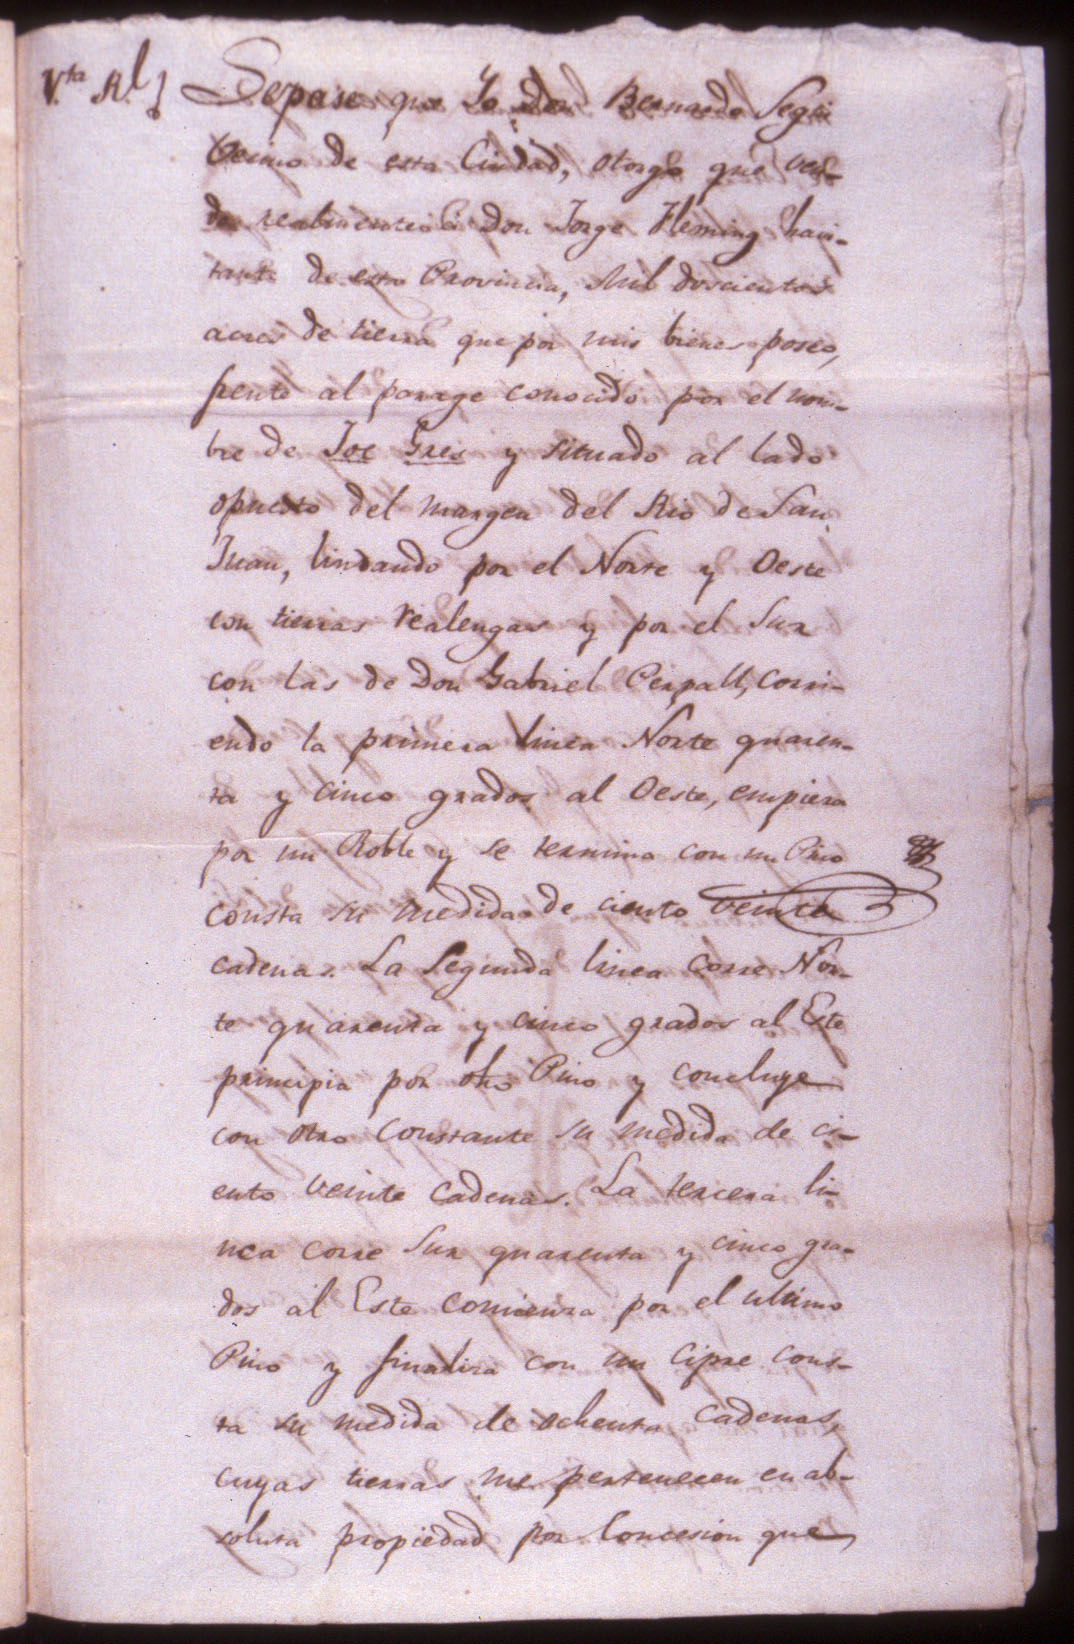 V.ta Rl
Sepase que Yo Don Bernardo Segui
Vecino de esta Ciudad, otorgo que ven-
do realmente á Don Jorge Fleming havi-
tante de esta Provincia, mil doscientos
acres de tierra que por mis bienes poseo,
frente al parage conocido por el nom-
bre de Joe Gres y situado al lado
opuesto del margen del Rio de San
Juan, lindando por el Norte y Oeste
con tierras realengas y por el Sur
con las de Don Gabriel Perpall, corri-
endo la primera linea Norte quaren-
ta y cinco grados al Oeste, empieza
por un Roble y se termina con un Pino
consta su medida de ciento veinte
cadenas. La segunda linea corre Nor-
te quarenta y cinco grados al Este
principia por otro Pino y concluye
con otro constante su medida de ci-
ento veinte cadenas. La tercera li-
nea corre Sur quarenta y cinco gra-
dos al Este comienza por el ultimo
Pino y finaliza con un Cipre cons-
ta su medida de ochenta cadenas,
cuyas tierras me pertenecen en ab-
soluta propiedad por Concesion que